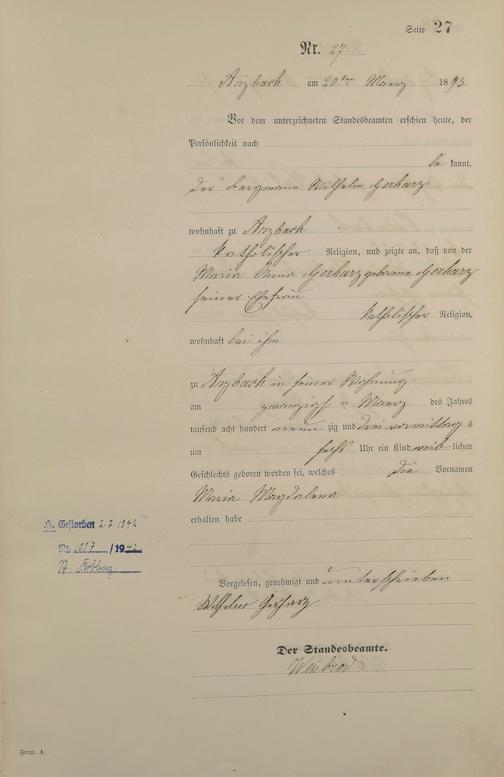 Seite 27
Nr. 27
Arzbach am 20ten Maerz 1893
Vor dem unterzeichneten Standesbeamten erschien heute, der
Persönlichkeit nach
be kannt,
der Bergmann Wilhelm Gerharz
wohnhaft zu Arzbach
katholischer Religion, und zeigte an, daß von der
Maria Anna Gerharz geborene Gerharz
seiner Ehefrau
katholischer Religion,
wohnhaft bei ihm
zu Arzbach in seiner Wohnung
am zwanzigsten Maerz des Jahres
tausend acht hundert neun zig und drei vormittags
um sechs Uhr ein Kind weib lichen
Geschlechts geboren worden sei, welches die Vornamen
Maria Magdalena
erhalten habe
Gestorben 2.7.1942
Nr. 1017/1942
St. Koblenz
Vorgelesen, genehmigt und unterschrieben
Wilhelm Gerharz
Der Standesbeamte.
Weisbrod
Form. A.